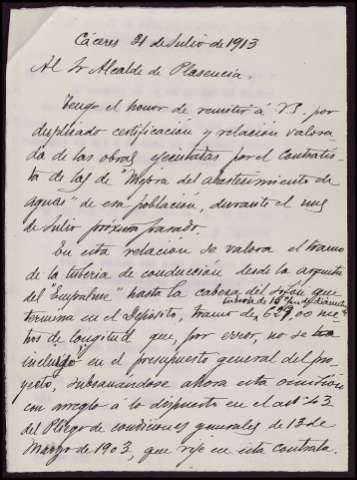 Cáceres 31 de Julio de 1913
Al Sr Alcalde de Plasencia.
Tengo el honor de remitir á V.S. por
duplicado certificación y relación valora
da de las obras ejecutadas por el Contratis
ta de las de "Mejora del abastecimiento de
aguas" de esa población, durante el mes
de Julio próximo pasado.
En esta relación se valora el tramo
de la tuberia de conducción desde la arqueta
del "Empalme" hasta la cabeza del sifón que
tubería de 15 % de diámetro
termina en el Depósito, tramo de 629,00 me
tros de longitud que, por error, no se
incluyó en el presupuesto general del pro
yecto, subsanandose ahora esta omisión
con arreglo á lo dispuesto en el artº 43
del Pliego de condiciones generales de 13 de
Marzo de 1903, que rije en esta contrata.